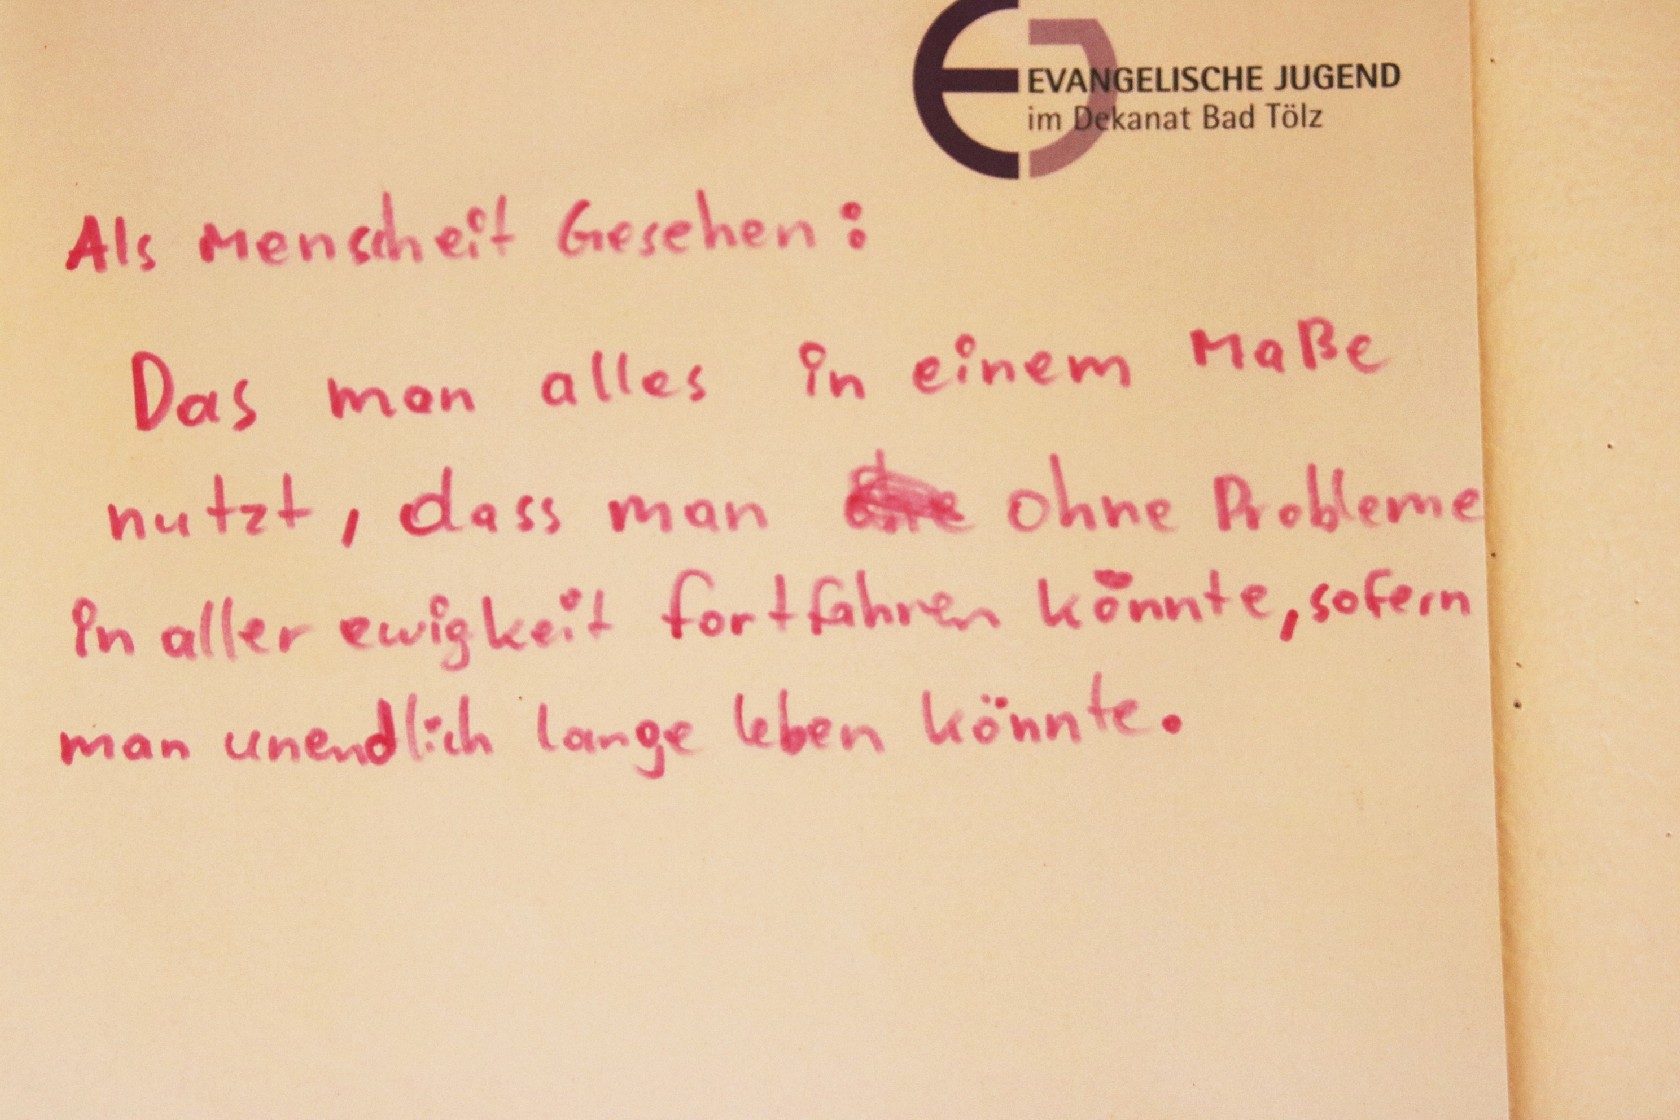 EVANGELISCHE JUGEND
im Dekanat Bad Tölz
Als Menscheit Gesehen:
Das man alles in einem Maße
nutzt, dass man ohne Probleme
in aller ewigkeit fortfahren könnte, sofern
man unendlich lange leben könnte.